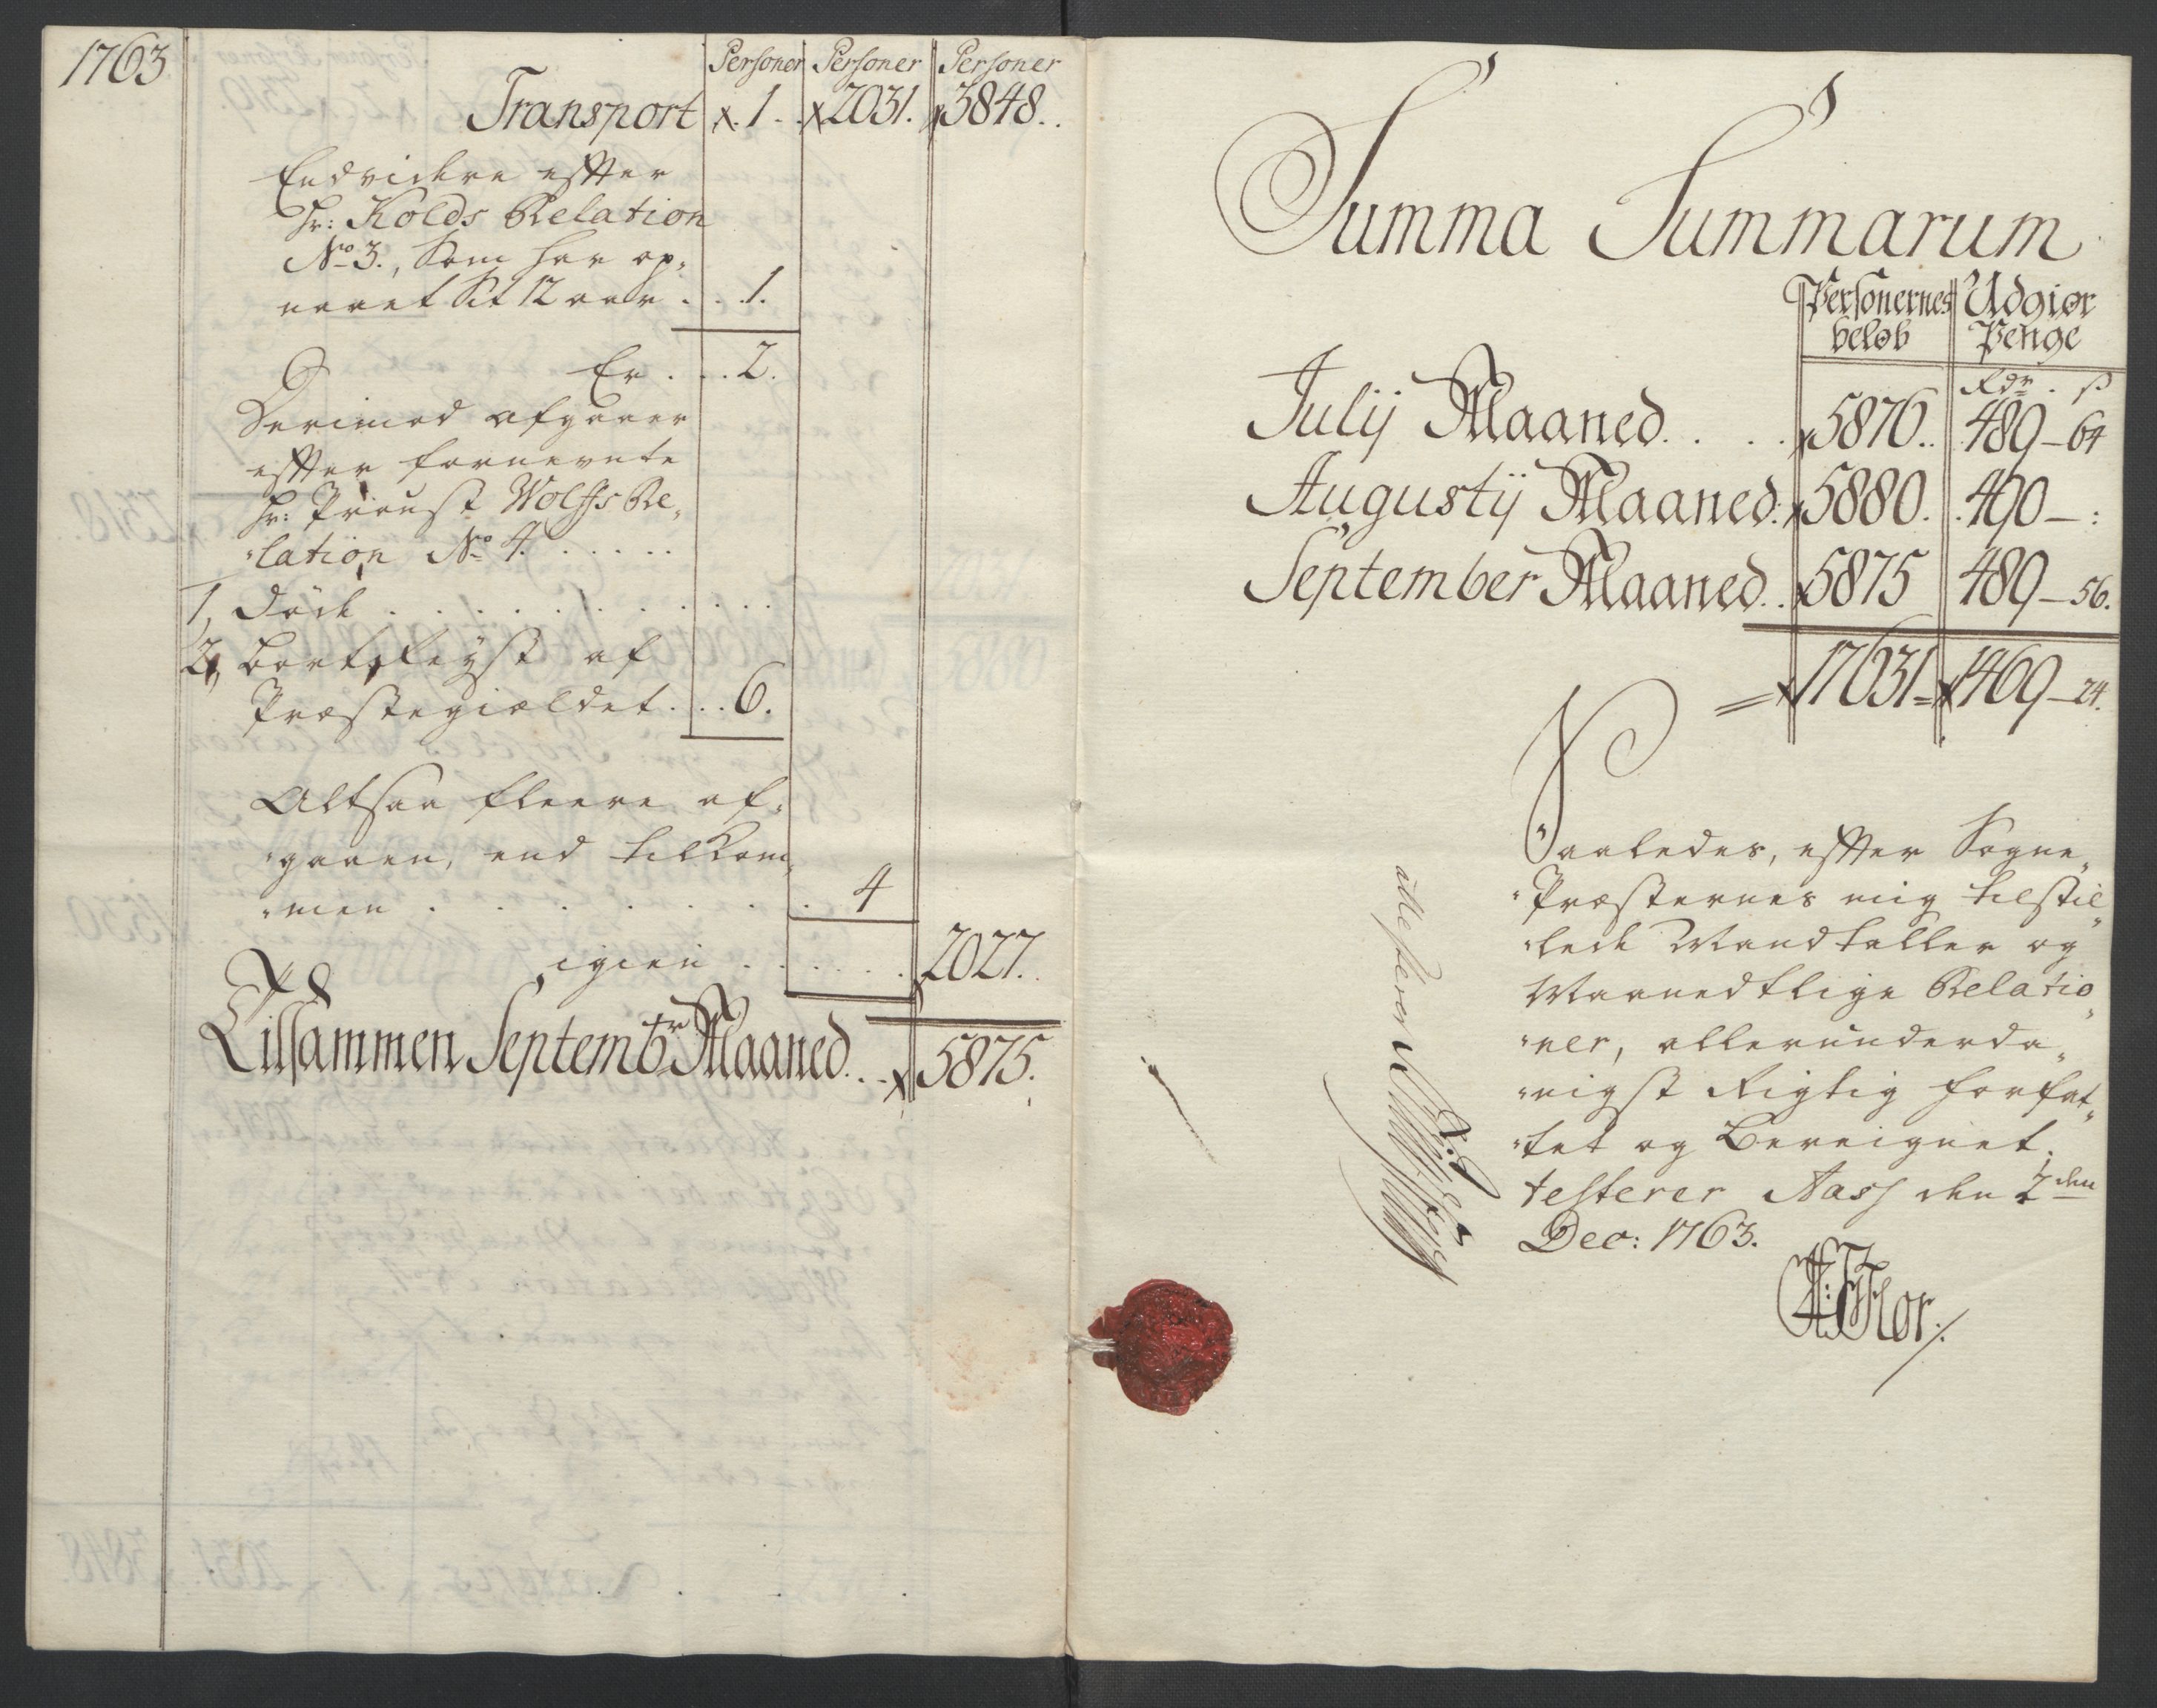 1763
Personer Personer Personer
Transport x. 1. x 2031. x 3848.
Endvidere efter
Hr: Kolds Relation
No 3., som har op„
naaet sit 12 aar . . . 1.
Er . . . 2.
Derimod afgaaer
efter fornevnte
Hr: Proust Wolffs Re„
„lation No 4. . . . . .
1, døde . . . . . . . . . .
bortreyst af
Præstegieldet . . . 6.
Altsaa fleere af„
„gaaen, end tilkom„
„men . . . . . . . . 4
igien . . . . . . 2027.
Tilsammen Septembr Maaned . . x 5875.
Summa Summarum
Personernes Udgiør
beløb Penge
Rdr. ß
Julij Maaned. . . . x 5876. . 489 – 64
Augustij Maaned. x 5880. . 490 – :
September Maaned. . x 5875 489 – 56.
= x 17631 = x 1469 – 24.
Saaledes, efter Sogne„
„Præsternes mig tilstil„
„lede Mandtaller og
Maanedtlige Relatio„
„ner, allerunderda„
„nigst Rigtig forfat„
„tet og Bereignet,
testerer Aass den 2den
Dec: 1763.
Flor ./.
attesterer